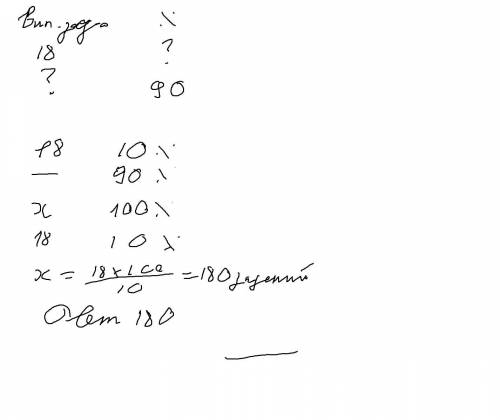 Вип. задр %
18 ?
? 90
18 10%
— 90%
x 100%
18 10%
x = 18x100/10 = 180 заданий
Ответ 180